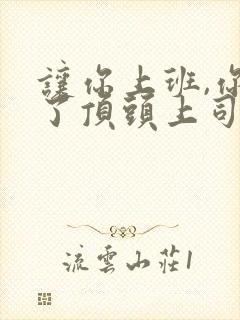 讓你上班,你
了頂頭上司
流雲山莊1